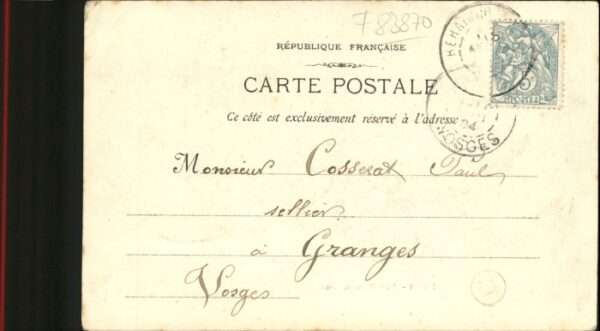 7 83870
RÉPUBLIQUE FRANÇAISE
CARTE POSTALE
Ce côté est exclusivement réservé à l'adresse
Monsieur Cosserat Paul
sellier
à Granges
Vosges
VOSGES